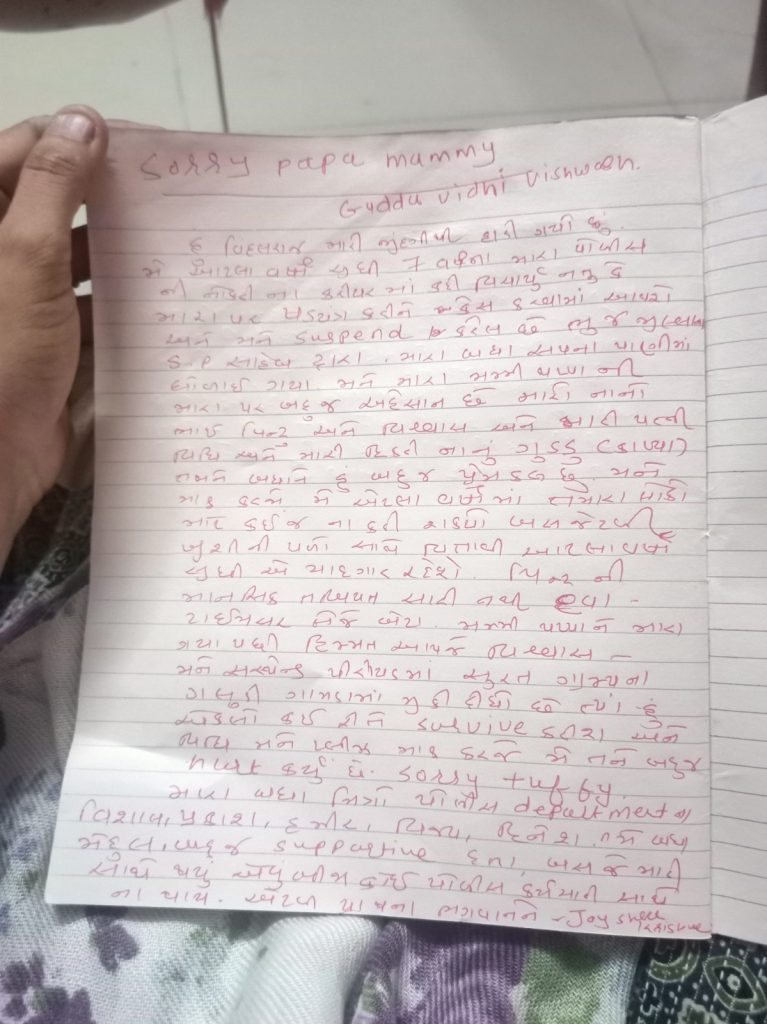 Sorry papa mummy
Guddu vidhi vishwash.
હું વિહલરાજ મારી જીંદગીથી હારી ગયો છું.
મે આટલા વર્ષો સુધી 7 વર્ષના મારા પોલીસ
ની નોકરી ના કરીયર માં કદી વિચાર્યું નતુ કે
મારા પર ષડયંત્ર કરીને કેસ કરવામાં આવશે
અને મને suspend કરેલ છે ભુજ
S.P સાહેબ દ્વારા. મારા બધા સપના પાણીમાં
ધોવાઈ ગયા મને મારા મમ્મી પપ્પા ની
મારા પર બહુ જ અહેસાન છે મારો નાનો
ભાઈ પિન્ટુ અને વિશ્વાસ અને મારી પત્ની
વિધિ અને મારી દિકરી નાનું ગુડ્ડુ (કાવ્યા)
તમને બધાને હું બહુ જ પ્રેમ કરૂ છુ. મને
માફ કરજો મે એટલા વર્ષોમાં તમારા માટે
માટે કંઈ જ ના કરી શક્યો બસ જેટલી
ખુશીની પળો સાથે વિતાવી આટલા વર્ષો
સુધી એ યાદગાર રહેશે. પિન્ટુ ની
માનસિક તબિયત સારી નથી દવા -
ટાઈમસર લેજે બેટા. મમ્મી પપ્પાને મારા
ગયા પછી હિમ્મત આપજે વિશ્વાસ -
મને સસ્પેન્ડ પીરીયડમાં સુરત ગ્રામ્યના
ગામડામાં મુકી દીધો છે ત્યાં હું
એકલો કઈ રીતે survive કરીશ અને
મને પ્લીઝ માફ કરજે મે તને બહુજ
hurt કર્યું છે. sorry tuffy.
મારા બધા મિત્રો પોલીસ department ના
વિશાલ, પ્રકાશ, હમીર, વિજય, દિનેશ તમે બધા
મેહુલ, બહુ જ supportive હતા, બસ જે મારી
સાથે થયું એવું બીજા કોઈ પોલીસ કર્મચારી સાથે
ના થાય. એટલી પ્રાર્થના ભગવાનને - Joy shree
krishna